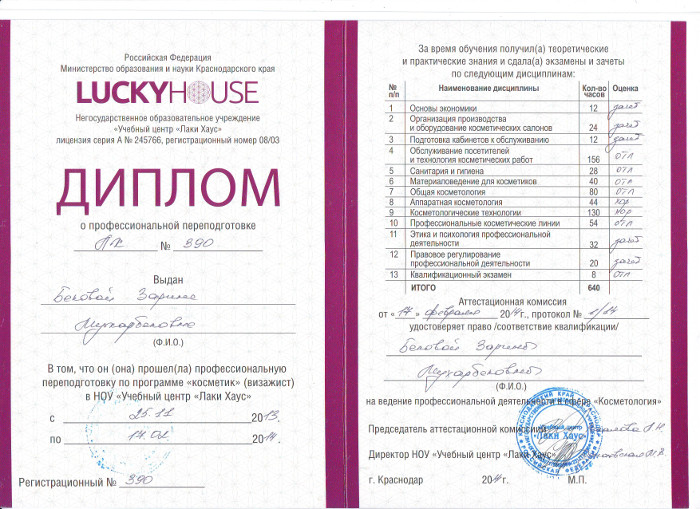 Российская Федерация
Министерство образования и науки Краснодарского края
LUCKYHOUSE
Негосударственное образовательное учреждение
«Учебный центр «Лаки Хаус»
лицензия серия А № 245766, регистрационный номер 08/03
ДИПЛОМ
о профессиональной переподготовке
ПК № 390
Выдан
Бековой Зарине
Мухарбековне
(Ф.И.О.)
В том, что он (она) прошел(ла) профессиональную
переподготовку по программе «косметик» (визажист)
в НОУ «Учебный центр «Лаки Хаус»
с 25.11 2013.
по 14.02 2014
Регистрационный № 390
За время обучения получил(а) теоретические
и практические знания и сдала(а) экзамены и зачеты
по следующим дисциплинам:
№ п/п Наименование дисциплины Кол-во часов Оценка
1 Основы экономики 12 зачет
2 Организация производства
и оборудование косметических салонов 24 зачет
3 Подготовка кабинетов к обслуживанию 12 зачет
4 Обслуживание посетителей
и технология косметических работ 156 отл
5 Санитария и гигиена 28 отл
6 Материаловедение для косметиков 40 отл
7 Общая косметология 80 отл
8 Аппаратная косметология 44 хор
9 Косметологические технологии 130 хор
10 Профессиональные косметические линии 54 отл
11 Этика и психология профессиональной
деятельности 32 зачет
12 Правовое регулирование
профессиональной деятельности 20 зачет
13 Квалификационный экзамен 8 отл
ИТОГО 640
Аттестационная комиссия
от «14» февраля 2014г., протокол №
удостоверяет право /соответствие квалификации/
Бековой Зарины
Мухарбековны
(Ф.И.О.)
на ведение профессиональной деятельности в сфере «Косметология»
Председатель аттестационной комиссии
Директор НОУ «Учебный центр «Лаки Хаус»
Учебный центр
«Лаки Хаус»
г. Краснодар 2014г. М.П.